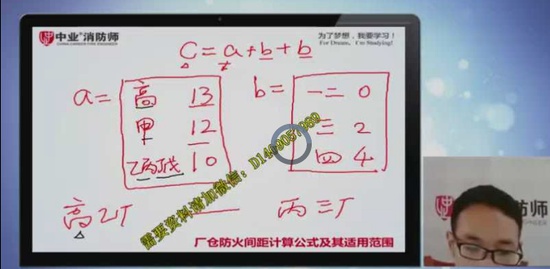 中业®消防师
为了梦想,我要学习!
For Dream, I'm Studying!
C=a+b+b
a= 高 13
甲 12
乙丙丁戊 10
b= 一二 0
三 2
四 4
高乙厂 —— 丙三厂
厂仓防火间距计算公式及其适用范围